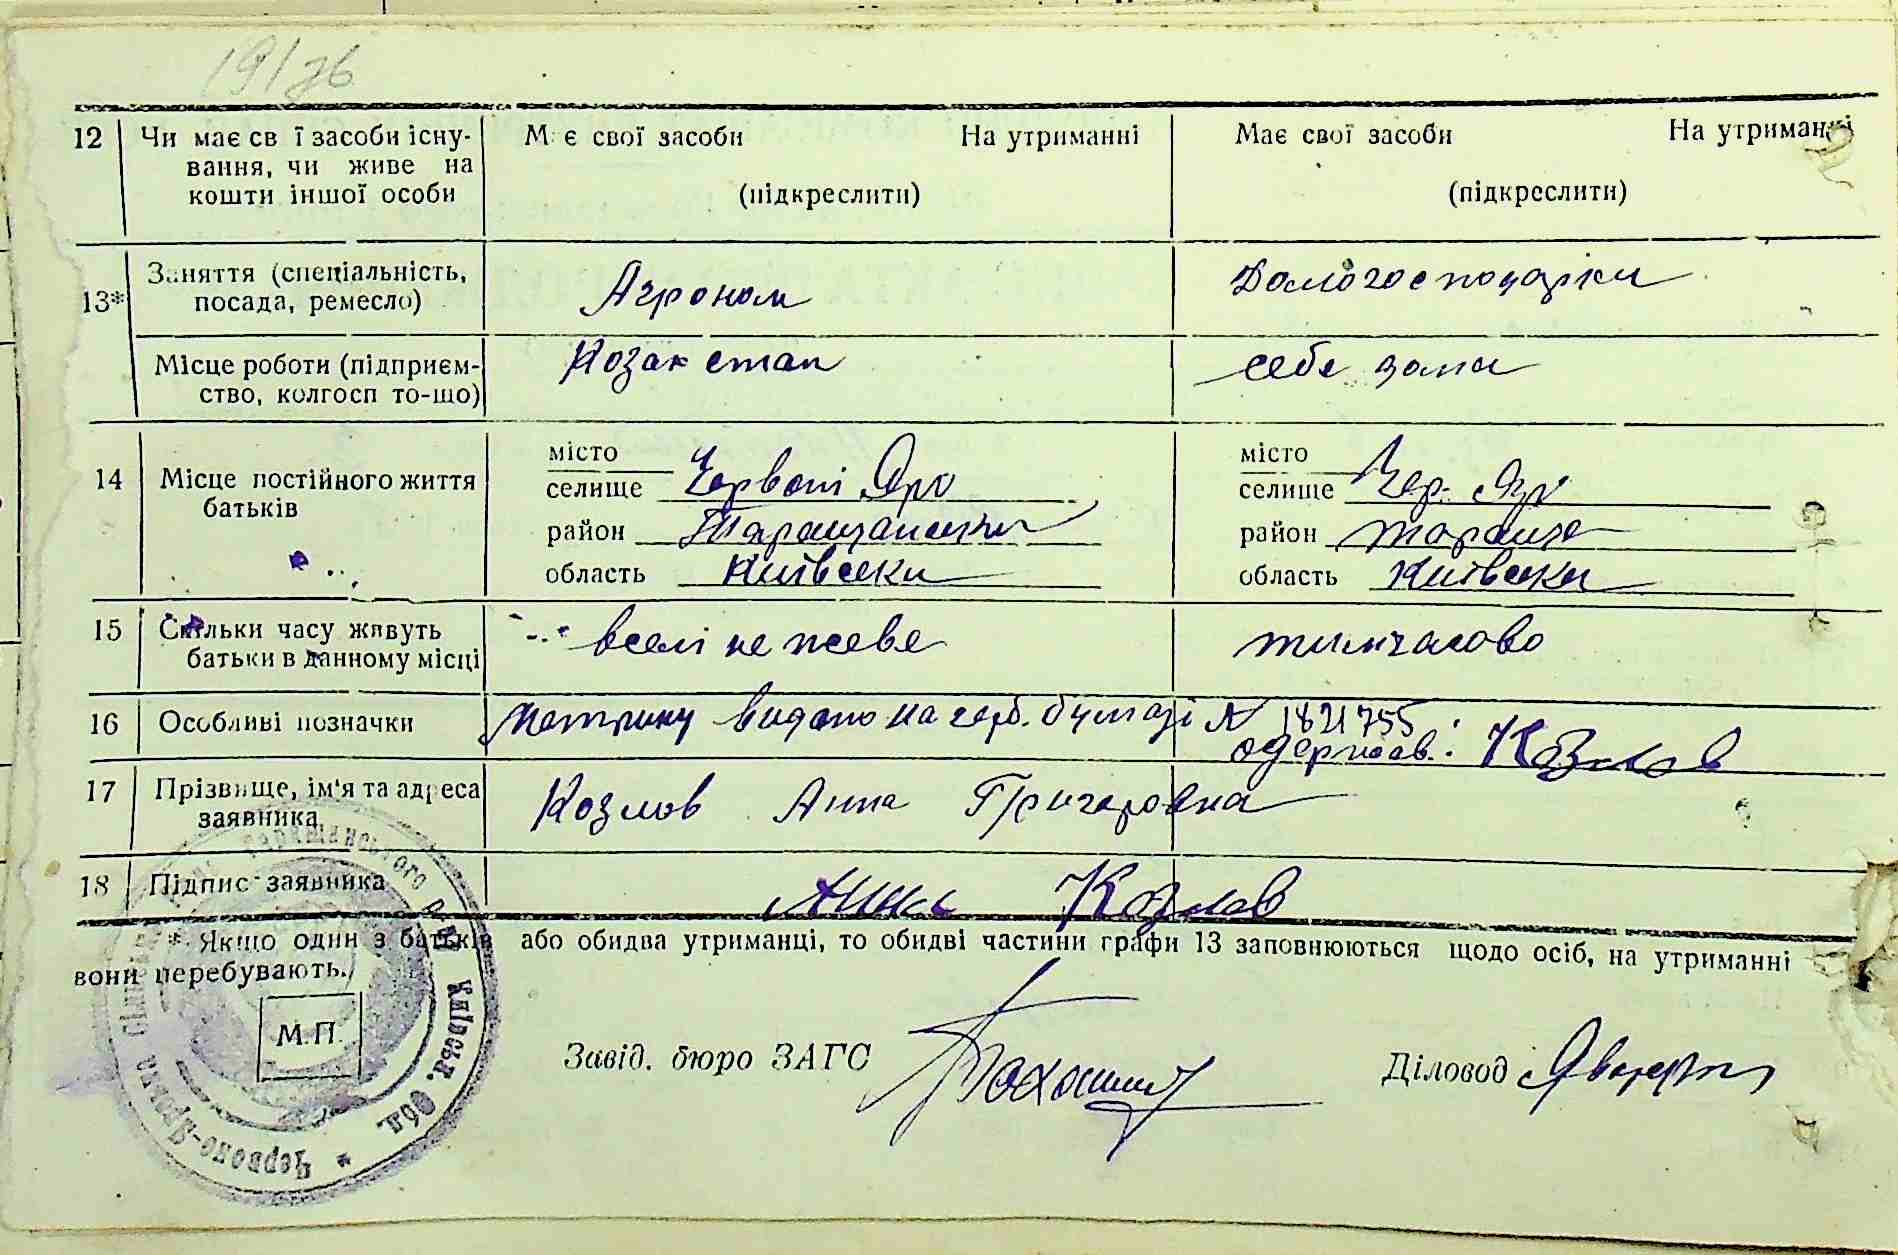 19/36
12 Чи має св ї засоби існу- М є свої засоби На утриманні Має свої засоби На утриманні
вання, чи живе на
кошти іншої особи (підкреслити) (підкреслити)
13* Заняття (спеціальність,
посада, ремесло) Агроном Домогосподарки
Місце роботи (підприєм-
ство, колгосп то-що) Козак стап себе дома
14 Місце постійного життя
батьків
місто місто
селище Червоні Яри селище Чер. Яри
район Таращанськи район Тараща
область Київськи область Київськи
15 Скільки часу живуть
батьки в данному місці вселі не живе тимчасово
16 Особливі позначки Метрику видано на герб. бумазі N 1821755
одержав: Козлов
17 Прізвище, ім'я та адреса
заявника Козлов Анна Григоровна
18 Підпис заявника Анна Козлов
* Якщо один з батьків або обидва утриманці, то обидві частини графи 13 заповнюються щодо осіб, на утриманні
вони перебувають.
М.П.
Завід. бюро ЗАГС
Діловод
Червоно-Ярська Таращанського р-ну Київськ. Обл. *